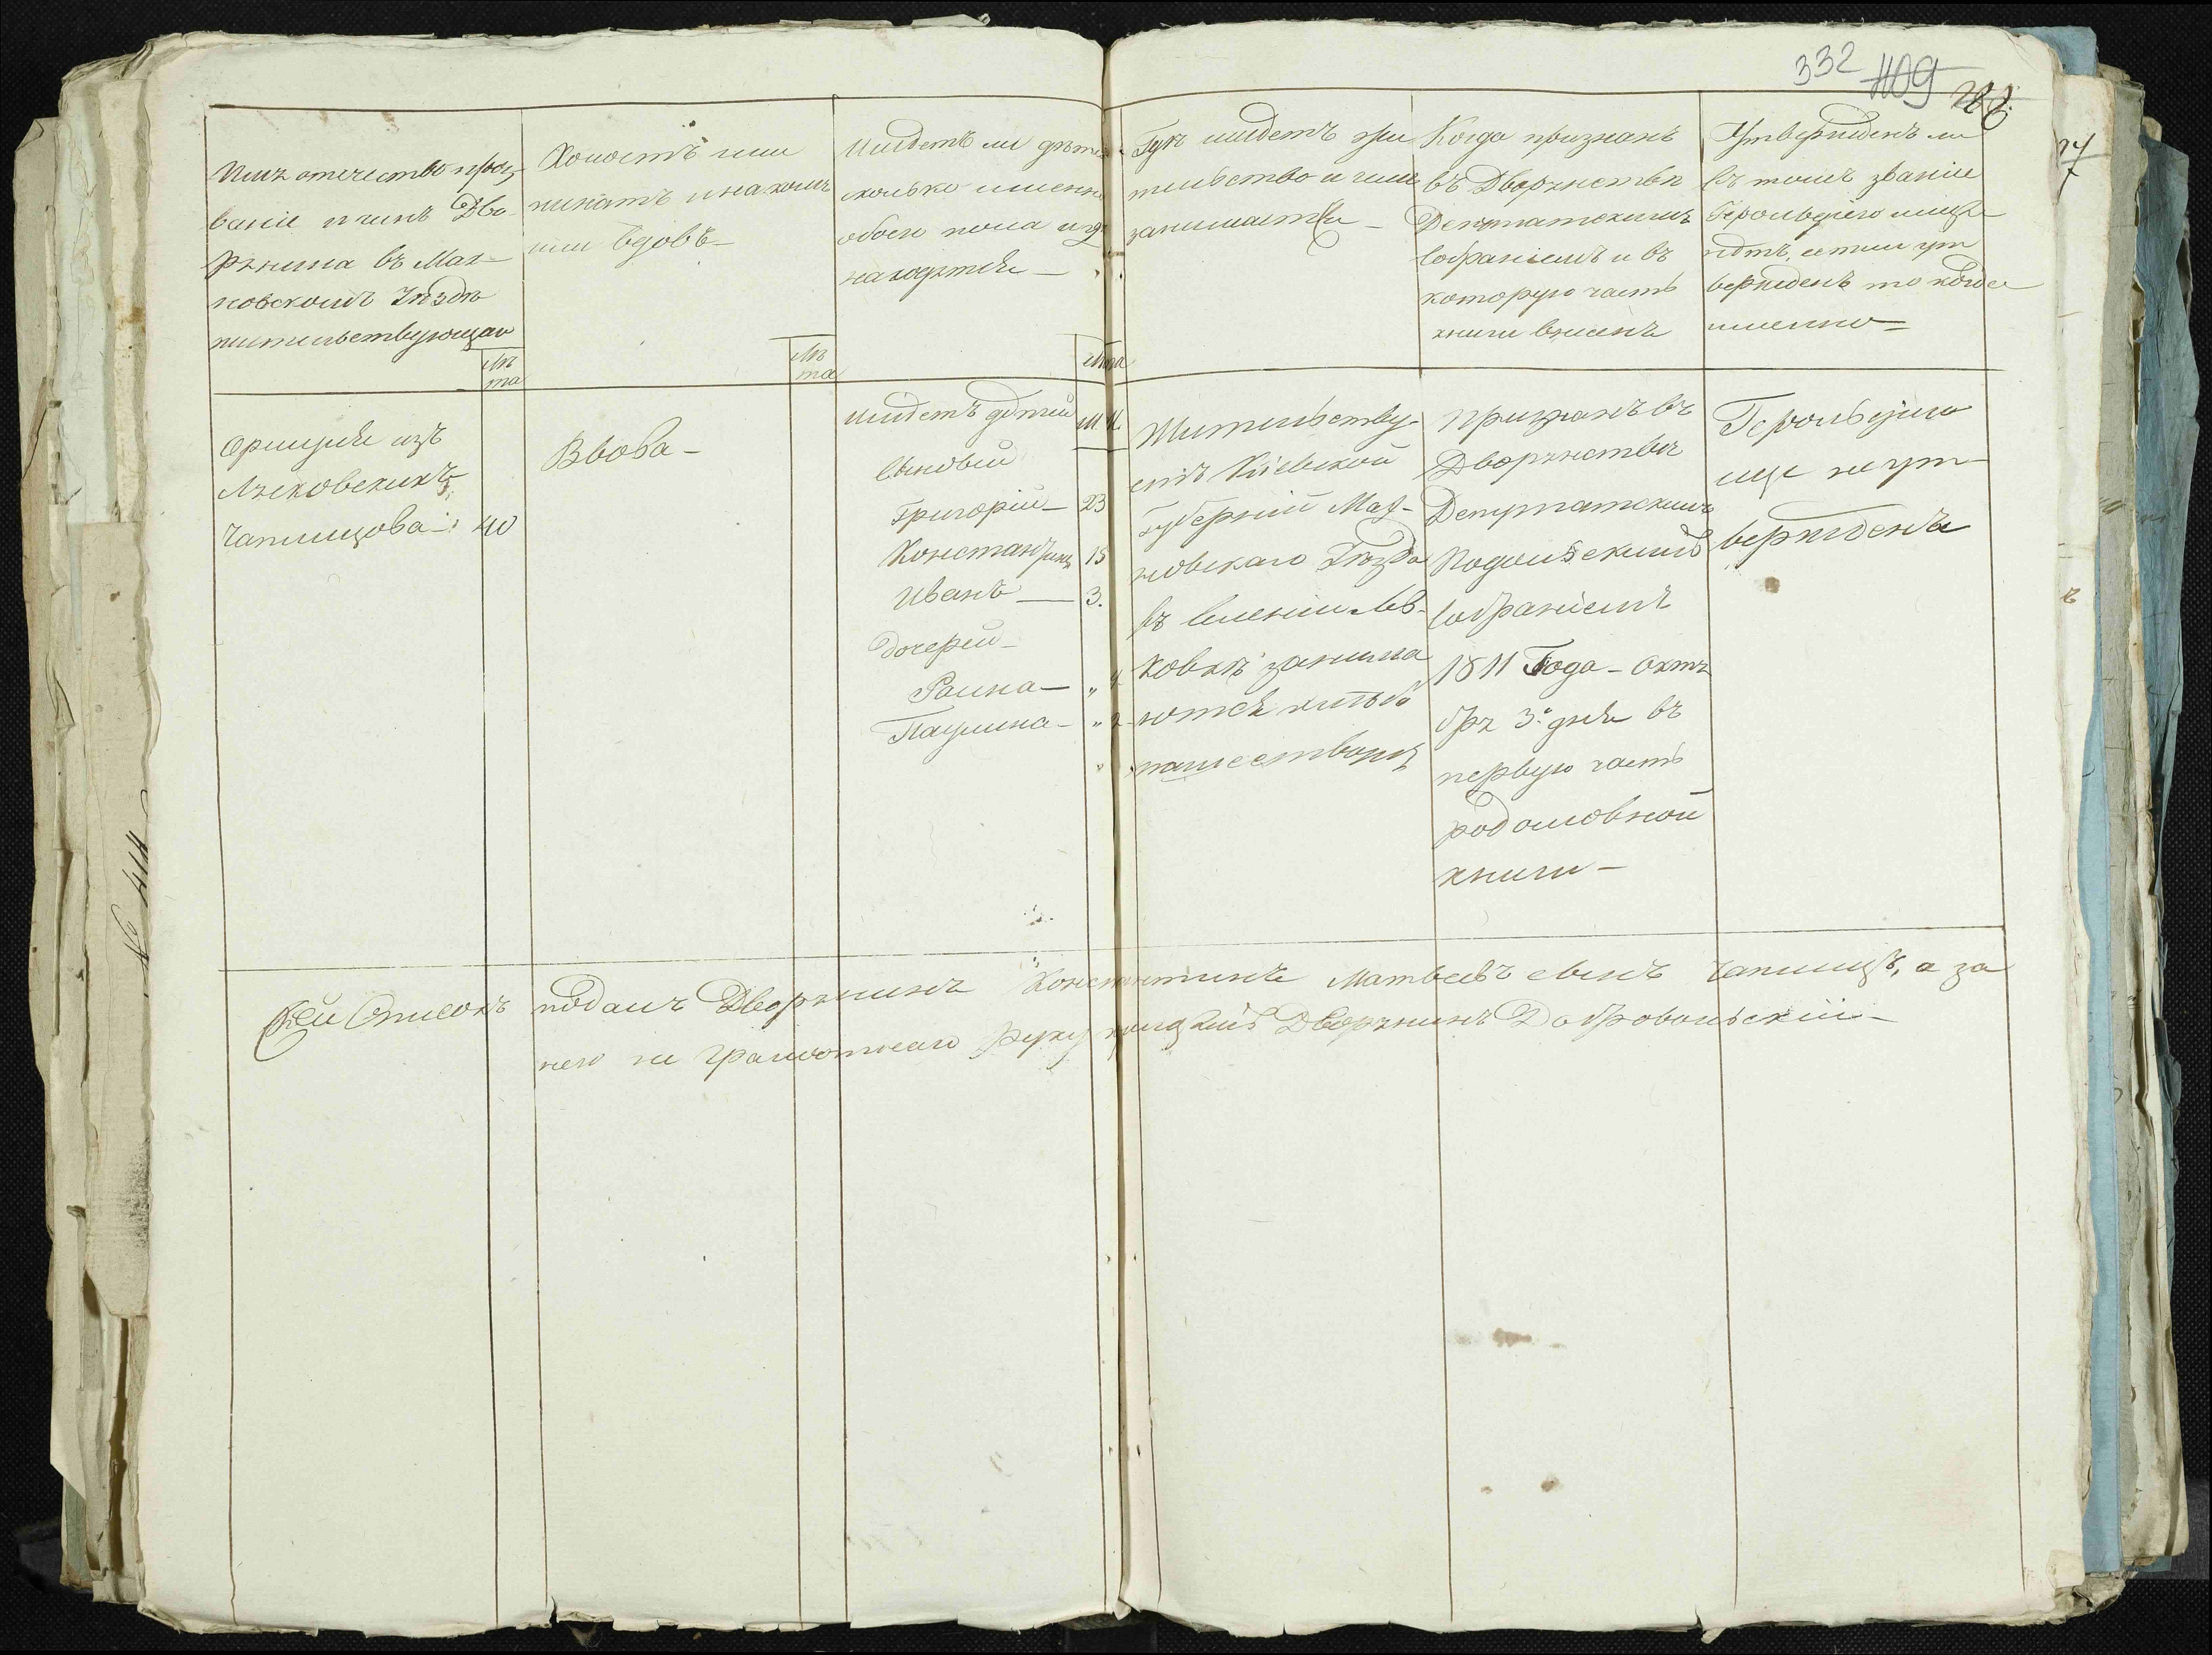 332 409
Имя отечество проз,
ваніе и чинъ Дво-
рянина въ Мах-
новскомъ Уездѣ
жительствующаго
Лѣ
та
Холостъ или
женатъ и на комъ
или вдовъ-
Лѣ
та
Имѣетъ ли дѣтей
сколько именно
обоего пола и гдѣ
находятся-
Лѣта
Гдѣ имѣетъ жи
тельство и чемъ
занимается-
Когда признанъ
въ Дворянствѣ
Депутатскимъ
Собраніемъ и въ
которую часть
книги внесенъ
Утвержденъ ли
въ томъ званіи
Герольдіею или
нѣтъ, естли ут
вержденъ то когда
именно-
Оришка изъ
Лясковскихъ
Чаплицова- 40
Вдова-
Имѣетъ дѣтей
М Ж
Сыновей
Григорій- 23
Константинъ 15
Иванъ- 3.
Дочерей-
Раина- " 4
Паулина- " 2
Жительству-
етъ Кіевской
Губерніи Мах-
новскаго Уѣзда
въ селеніи Лев-
ковкѣ занима
ются
Признанъ въ
Дворянствѣ
Депутатскимъ
Подольскимъ
Собраніемъ
1811 Года-Октя
бря 3го дня въ
первую часть
родословной
книги-
Герольдіею
еще не ут-
вержденъ
Сей Списокъ подалъ Дворянинъ Константинъ Матвеевъ сынъ Чаплицъ, а за
него не грамотнаго Руку Дворянинъ Добровольскій-